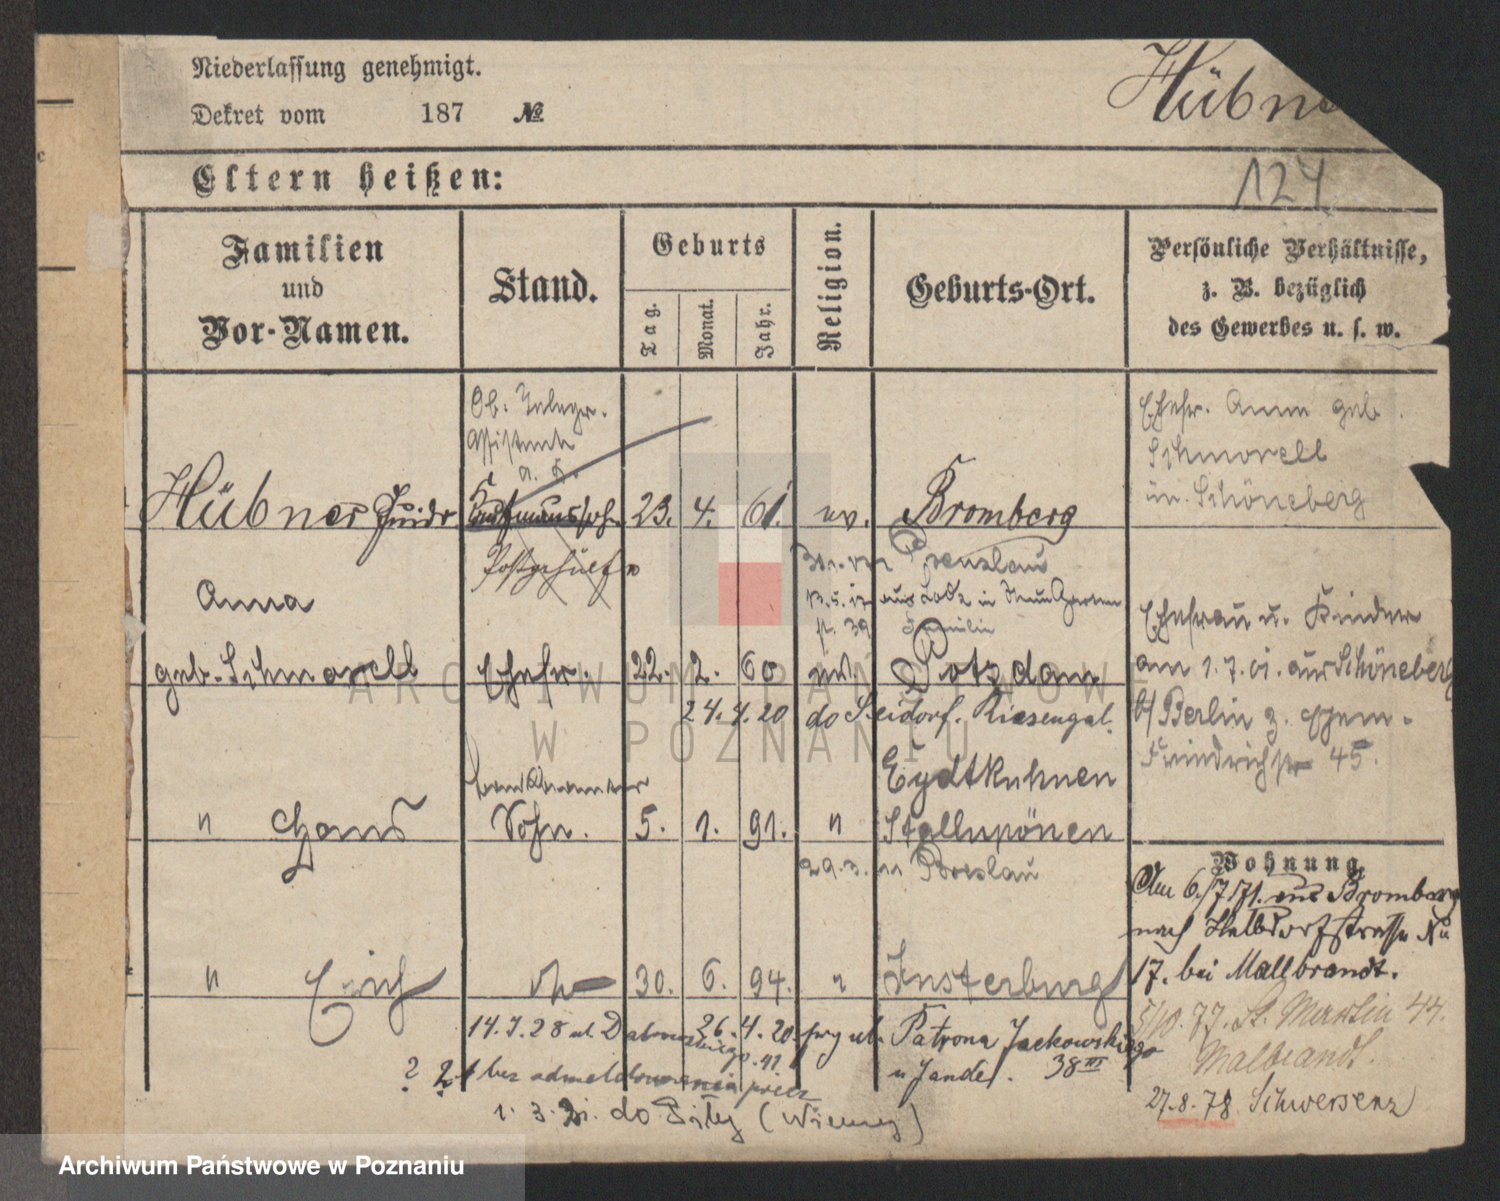 Niederlassung genehmigt.
Dekret vom 187 №
Hübner
Eltern heißen:
124
Familien
und
Vor-Namen.
Stand.
Geburts
Tag.
Monat.
Jahr.
Religion.
Geburts-Ort.
Persönliche Verhältnisse,
z. B. bezüglich
des Gewerbes u. s. w.
Ob. Telegr.
Assistent
a. D.
Hübner Friedr Kaufmannssohn 23. 4. 61. ev. Bromberg
Ehefr. Anna geb.
Schmorell
in Schöneberg
Postgehülfe
Prenzlau
Anna
geb. Schmorell Ehefr. 22. 2. 60 ev Potzdam
Ehefrau u. Kinder
am 1.7.01. aus Schöneberg
b/ Berlin z. Ehem.
Friedrichstr 45.
24.4.20 do Seidorf. Riesengeb.
Eydtkuhnen
" Hans Sohn. 5. 1. 91. " Stallupönen
29.3. n Breslau
Wohnung
Am 6./7 71. aus Bromberg
nach Halbdorfstrasse No
17. bei Mallbrandt.
" Erich do 30. 6. 94. " Insterburg
5/10.77. St. Martin 44.
Malbrandt.
27.8.78 Schwersenz
26.4.20 przy ul. Patrona Jackowskiego
u Jandel. 38 III
14.7.28 ul. Dabrowskiego 41
? 2. bez odmeldowania precz
do Piły (Wieney)
ARCHIWUM PAŃSTWOWE
W POZNANIU
Archiwum Państwowe w Poznaniu